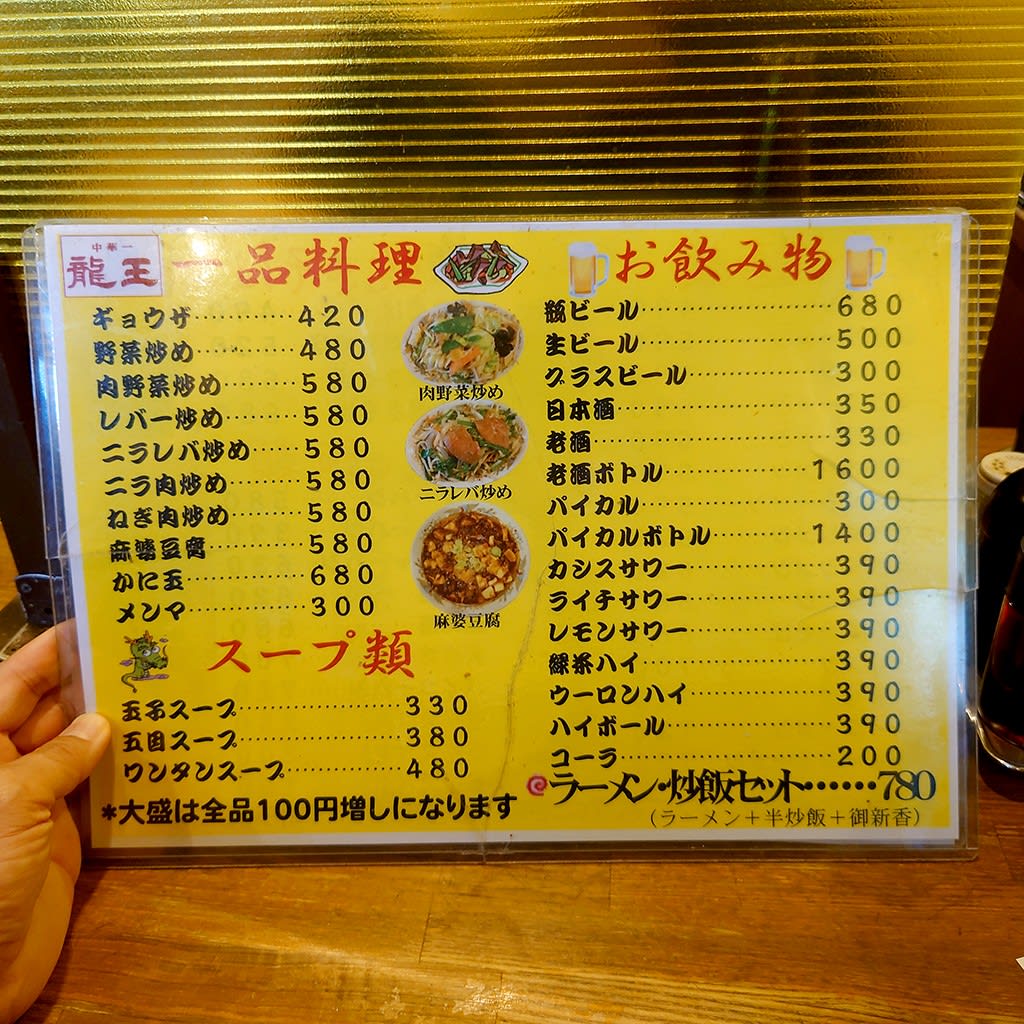 中華一
龍王
一品料理
ギョウザ…………420
野菜炒め…………480
肉野菜炒め………580
レバー炒め………580
ニラレバ炒め……580
ニラ肉炒め………580
ねぎ肉炒め………580
麻婆豆腐…………580
かに玉……………680
メンマ……………300
肉野菜炒め
ニラレバ炒め
麻婆豆腐
スープ類
玉子スープ…………………330
五目スープ…………………380
ワンタンスープ……………480
*大盛は全品100円増しになります
お飲み物
瓶ビール……………………680
生ビール……………………500
グラスビール………………300
日本酒………………………350
老酒…………………………330
老酒ボトル………………1600
パイカル……………………300
パイカルボトル…………1400
カシスサワー………………390
ライチサワー………………390
レモンサワー………………390
緑茶ハイ……………………390
ウーロンハイ………………390
ハイボール…………………390
コーラ………………………200
ラーメン・炒飯セット……780
(ラーメン+半炒飯+御新香)